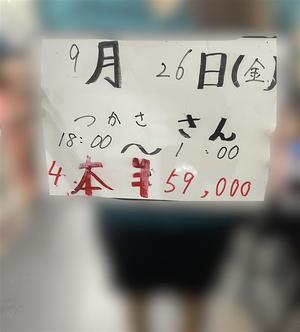 9月26日(金)
つかささん
18:00〜1:00
4本半59,000